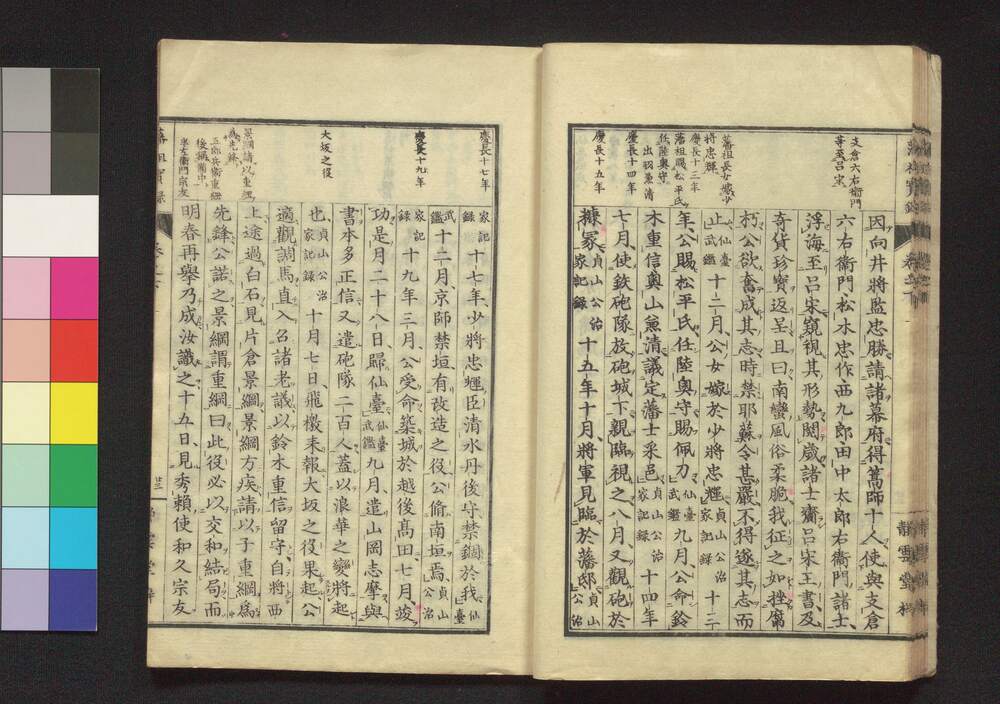 支倉六右衛門
等至呂宋
因向井將監忠勝請諸幕府得篙師十人使與支倉
六右衛門松木忠作西九郎田中太郎右衛門諸士
浮海至呂宋窺視其形勢閱歲諸士齎呂宋王書及
奇貨珍寶返呈且曰南蠻風俗柔脆我征之如挫腐
朽公欲奮成其志時禁耶蘇令甚嚴不得遂其志而
藩祖長女嫁少
將忠輝
慶長十三年
藩祖賜松平氏
任陸奧守
止仙臺武鑑十二月公女嫁於少將忠輝貞山公治家記錄十三
年公賜松平氏任陸奧守賜佩刀仙臺武鑑九月公命鈴
出羽兼清
慶長十四年
木重信奧山兼清議定藩士采邑貞山公治家記錄十四年
七月使鉄砲隊放砲城下親臨視之八月又觀砲於
慶長十五年
貞山公治家記錄十五年十月將軍見臨於藩邸貞山公治
靜雲堂梓
慶長十七年
家記錄十七年少將忠輝臣清水丹後守禁錮於我仙臺
武鑑十二月京師禁垣有改造之役公脩南垣焉貞山公治
慶長十九年
家記錄十九年三月公受命築城於越後髙田七月竣
功是月二十八日歸仙臺仙臺武鑑九月遣山岡志摩與
書本多正信又遣砲隊二百人蓋以浪華之變將起
大坂之役
也貞山公治家記錄十月七日飛檄来報大坂之役果起公
適觀調馬直入召諸老議以鈴木重信留守自將西
景綱請以重綱
為先鋒
上途過白石見片倉景綱景綱方疾請以子重綱為
先鋒公諾之景綱謂重綱曰此役必以交和結局而
明春再擧乃成汝識之十五日見秀頼使和久宗友
藩祖實錄